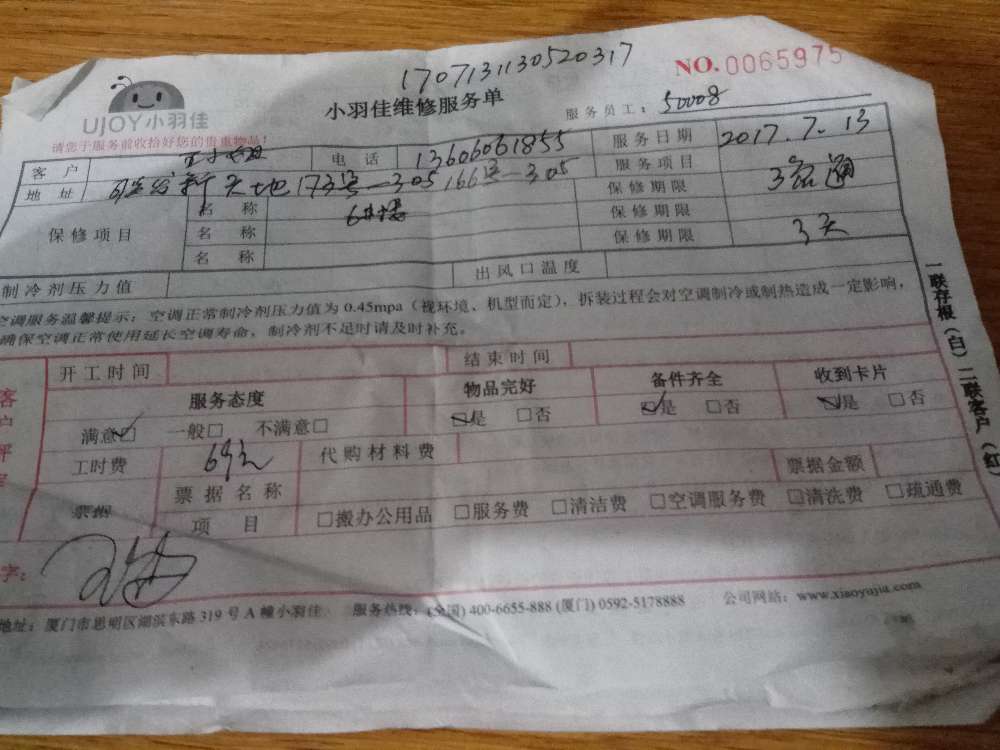 1707131130520317
NO.0065975
UJOY小羽佳
小羽佳维修服务单
服务员工：50008
请您于服务前收拾好您的贵重物品！
客户 电话 13606061855 服务日期 2017.7.13
地址 新天地173号-305 166号-305 服务项目
保修项目 名称 保修期限
名称 保修期限
名称 保修期限 3天
制冷剂压力值 出风口温度
空调服务温馨提示：空调正常制冷剂压力值为0.45mpa（视环境、机型而定），拆装过程会对空调制冷或制热造成一定影响，
确保空调正常使用延长空调寿命，制冷剂不足时请及时补充。
开工时间 结束时间
客户评 服务态度 物品完好 备件齐全 收到卡片
满意☑ 一般□ 不满意□ ☑是 □否 ☑是 □否 ☑是 □否
工时费 69元 代购材料费
票据 票据名称 票据金额
项目 □搬办公用品 □服务费 □清洁费 □空调服务费 □清洗费 □疏通费
字：
地址：厦门市思明区湖滨东路319号A幢小羽佳 服务热线：(全国) 400-6655-888 (厦门) 0592-5178888 公司网站：www.xiaoyujia.com
一联存根（白）二联客户（红